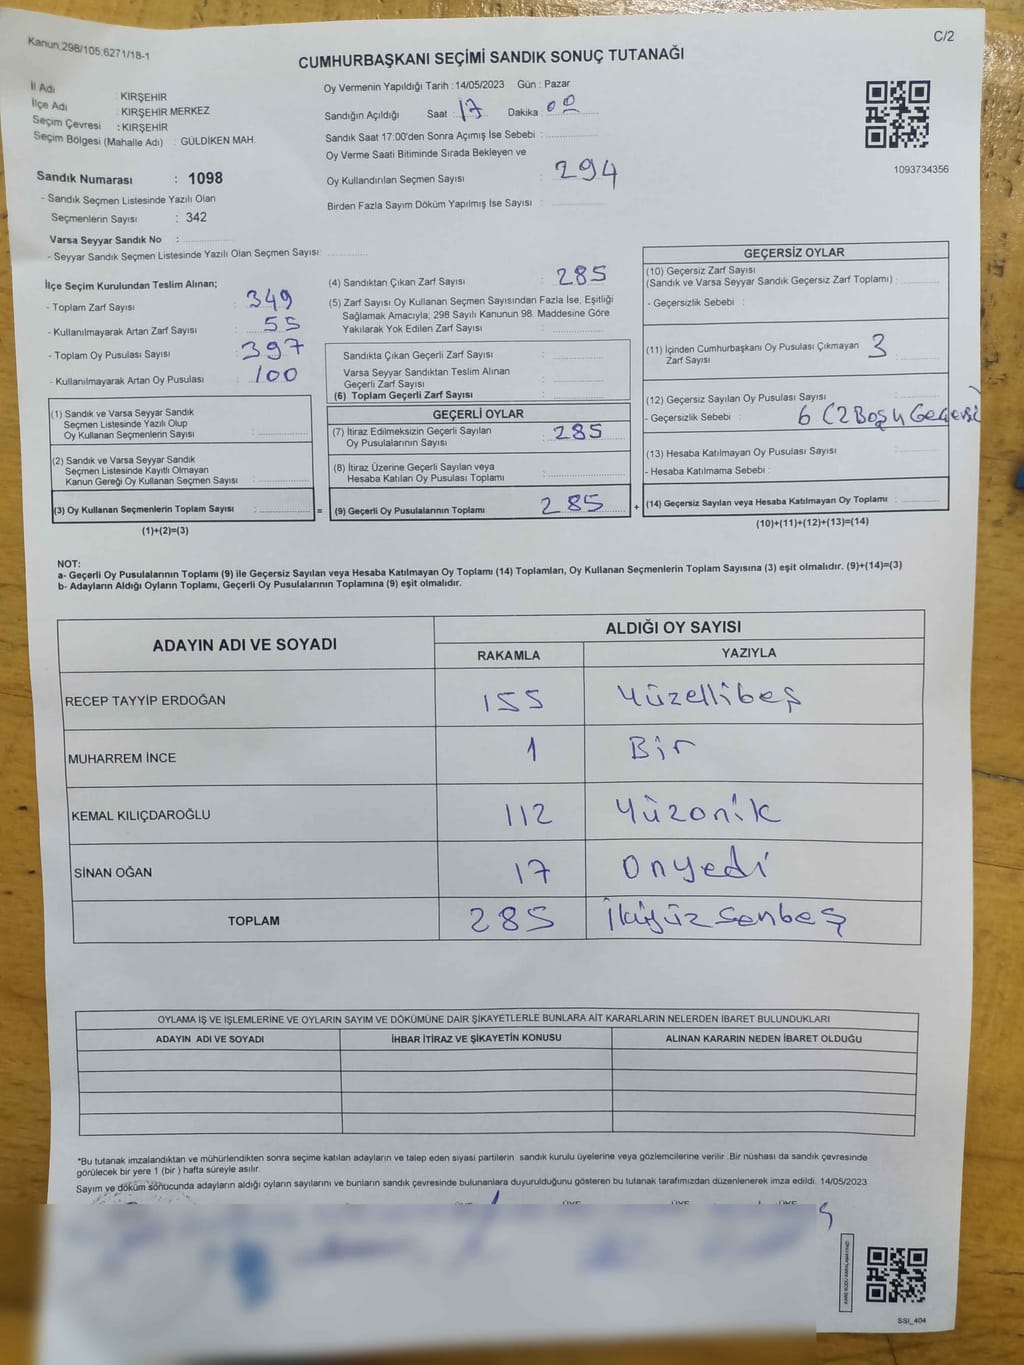 Kanun;298/105;6271/18-1
C/2
CUMHURBAŞKANI SEÇİMİ SANDIK SONUÇ TUTANAĞI
İl Adı : KIRŞEHİR
İlçe Adı : KIRŞEHİR MERKEZ
Seçim Çevresi : KIRŞEHİR
Seçim Bölgesi (Mahalle Adı) : GÜLDİKEN MAH.
Oy Vermenin Yapıldığı Tarih : 14/05/2023 Gün : Pazar
Sandığın Açıldığı Saat : 17 Dakika : 00
Sandık Saat 17:00'den Sonra Açımış İse Sebebi :
Oy Verme Saati Bitiminde Sırada Bekleyen ve
Oy Kullandırılan Seçmen Sayısı : 294
Birden Fazla Sayım Döküm Yapılmış İse Sayısı :
1093734356
Sandık Numarası : 1098
- Sandık Seçmen Listesinde Yazılı Olan
Seçmenlerin Sayısı : 342
Varsa Seyyar Sandık No :
- Seyyar Sandık Seçmen Listesinde Yazılı Olan Seçmen Sayısı:
İlçe Seçim Kurulundan Teslim Alınan;
- Toplam Zarf Sayısı : 349
- Kullanılmayarak Artan Zarf Sayısı : 55
- Toplam Oy Pusulası Sayısı : 397
- Kullanılmayarak Artan Oy Pusulası : 100
(1) Sandık ve Varsa Seyyar Sandık
Seçmen Listesinde Yazılı Olup
Oy Kullanan Seçmenlerin Sayısı :
(2) Sandık ve Varsa Seyyar Sandık
Seçmen Listesinde Kayıtlı Olmayan
Kanun Gereği Oy Kullanan Seçmen Sayısı :
(3) Oy Kullanan Seçmenlerin Toplam Sayısı :
(1)+(2)=(3)
=
(4) Sandıktan Çıkan Zarf Sayısı : 285
(5) Zarf Sayısı Oy Kullanan Seçmen Sayısından Fazla İse, Eşitliği
Sağlamak Amacıyla; 298 Sayılı Kanunun 98. Maddesine Göre
Yakılarak Yok Edilen Zarf Sayısı :
Sandıkta Çıkan Geçerli Zarf Sayısı :
Varsa Seyyar Sandıktan Teslim Alınan
Geçerli Zarf Sayısı :
(6) Toplam Geçerli Zarf Sayısı :
GEÇERLİ OYLAR
(7) İtiraz Edilmeksizin Geçerli Sayılan
Oy Pusulalarının Sayısı : 285
(8) İtiraz Üzerine Geçerli Sayılan veya
Hesaba Katılan Oy Pusulası Toplamı :
(9) Geçerli Oy Pusulalarının Toplamı : 285
+
GEÇERSİZ OYLAR
(10) Geçersiz Zarf Sayısı
(Sandık ve Varsa Seyyar Sandık Geçersiz Zarf Toplamı) :
- Geçersizlik Sebebi :
(11) İçinden Cumhurbaşkanı Oy Pusulası Çıkmayan
Zarf Sayısı : 3
(12) Geçersiz Sayılan Oy Pusulası Sayısı :
- Geçersizlik Sebebi : 6 (2 Boş 4 Geçersiz
(13) Hesaba Katılmayan Oy Pusulası Sayısı :
- Hesaba Katılmama Sebebi :
(14) Geçersiz Sayılan veya Hesaba Katılmayan Oy Toplamı :
(10)+(11)+(12)+(13)=(14)
NOT:
a- Geçerli Oy Pusulalarının Toplamı (9) ile Geçersiz Sayılan veya Hesaba Katılmayan Oy Toplamı (14) Toplamları, Oy Kullanan Seçmenlerin Toplam Sayısına (3) eşit olmalıdır. (9)+(14)=(3)
b- Adayların Aldığı Oyların Toplamı, Geçerli Oy Pusulalarının Toplamına (9) eşit olmalıdır.
ADAYIN ADI VE SOYADI
ALDIĞI OY SAYISI
RAKAMLA YAZIYLA
RECEP TAYYİP ERDOĞAN 155 Yüzellibeş
MUHARREM İNCE 1 Bir
KEMAL KILIÇDAROĞLU 112 Yüzonik
SİNAN OĞAN 17 Onyedi
TOPLAM 285 İkiyüzsenbeş
OYLAMA İŞ VE İŞLEMLERİNE VE OYLARIN SAYIM VE DÖKÜMÜNE DAİR ŞİKAYETLERLE BUNLARA AİT KARARLARIN NELERDEN İBARET BULUNDUKLARI
ADAYIN ADI VE SOYADI İHBAR İTİRAZ VE ŞİKAYETİN KONUSU ALINAN KARARIN NEDEN İBARET OLDUĞU
*Bu tutanak imzalandıktan ve mühürlendikten sonra seçime katılan adayların ve talep eden siyasi partilerin sandık kurulu üyelerine veya gözlemcilerine verilir .Bir nüshası da sandık çevresinde
görülecek bir yere 1 (bir ) hafta süreyle asılır.
Sayım ve döküm sonucunda adayların aldığı oyların sayılarını ve bunların sandık çevresinde bulunanlara duyurulduğunu gösteren bu tutanak tarafımızdan düzenlenerek imza edildi. 14/05/2023
SSI_404